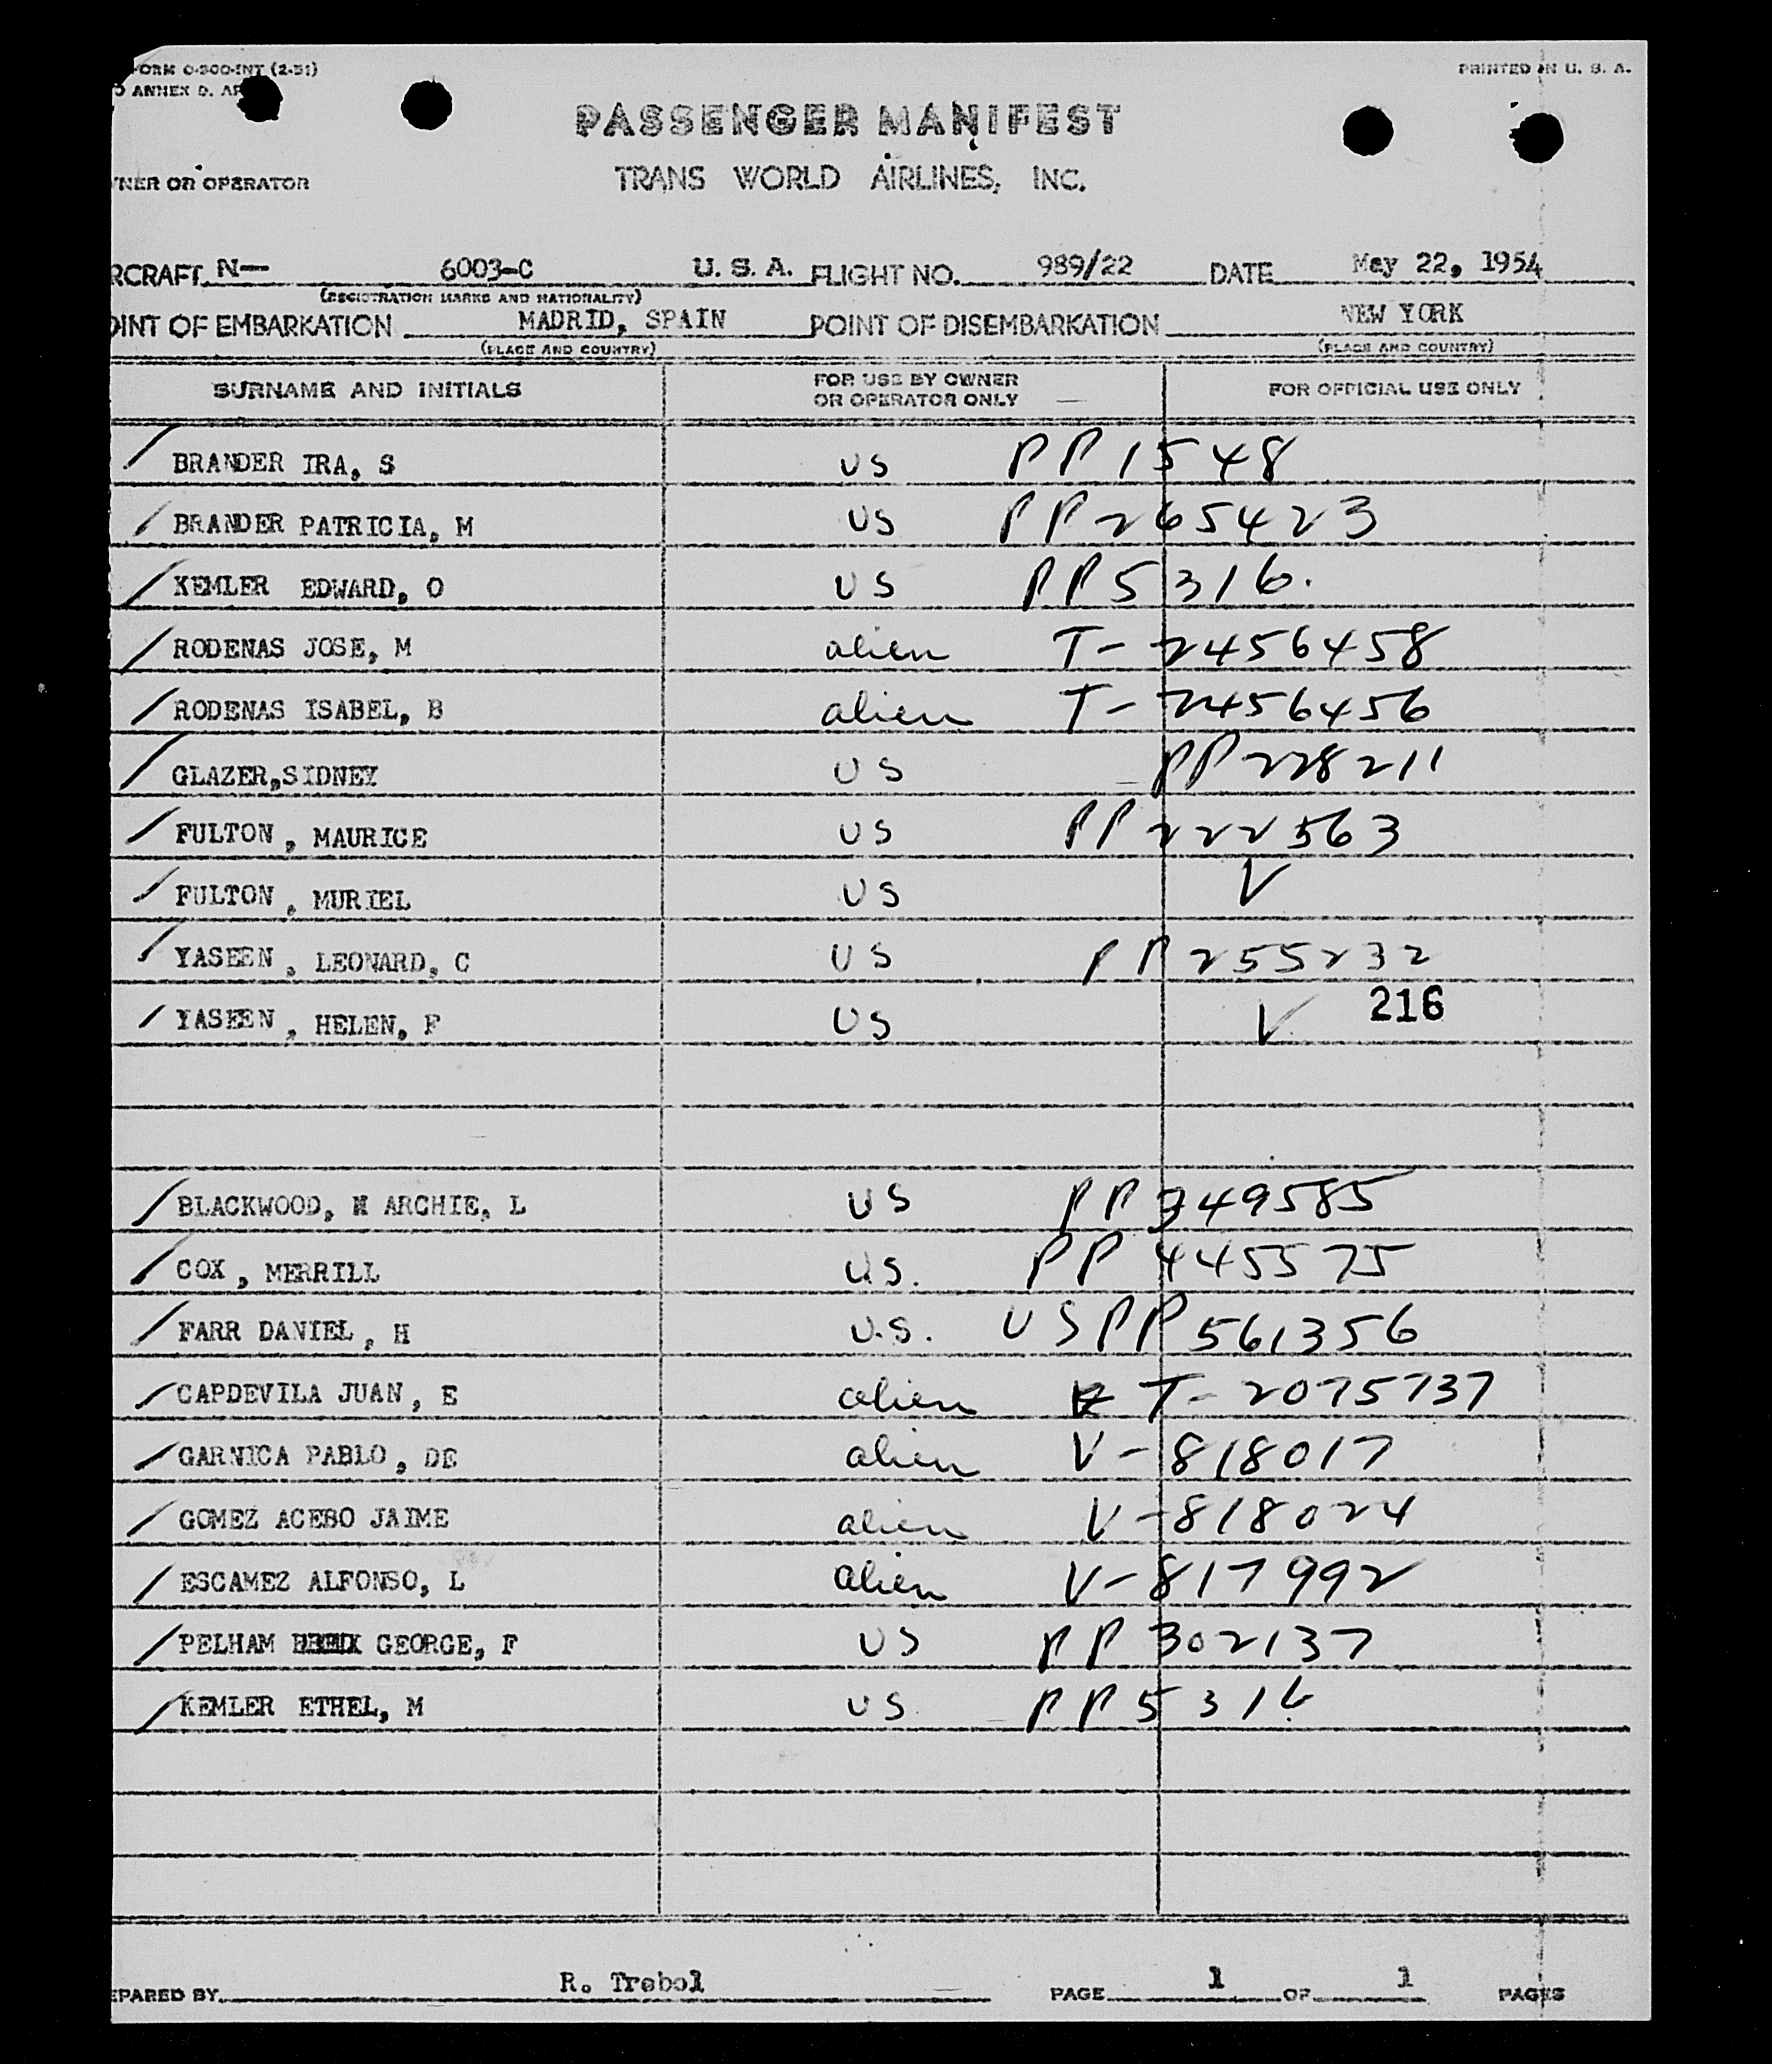 FORM O-300-INT (2-51)
PRINTED IN U. S. A.
ANNEX D.
PASSENGER MANIFEST
OWNER OR OPERATOR
TRANS WORLD AIRLINES, INC.
RCRAFT N— 6003-C U. S. A. FLIGHT NO. 989/22 DATE May 22, 1954
(REGISTRATION MARKS AND NATIONALITY)
OINT OF EMBARKATION MADRID, SPAIN POINT OF DISEMBARKATION NEW YORK
(PLACE AND COUNTRY) (PLACE AND COUNTRY)
SURNAME AND INITIALS FOR USE BY OWNER OR OPERATOR ONLY FOR OFFICIAL USE ONLY
BRANDER IRA, S US PP 1548
BRANDER PATRICIA, M US PP 265423
KEMLER EDWARD, O US PP 5316.
RODENAS JOSE, M alien T- 2456458
RODENAS ISABEL, B alien T- 2456456
GLAZER,SIDNEY US PP 228211
FULTON , MAURICE US PP 222563
FULTON , MURIEL US V
YASEEN , LEONARD, C US PP 255232
YASEEN , HELEN, F US V 216
BLACKWOOD, ARCHIE, L US PP 349585
COX , MERRILL U.S. PP 445575
FARR DANIEL , H U.S. US PP 561356
CAPDEVILA JUAN , E alien T- 2075737
GARNICA PABLO , DE alien V-818017
GOMEZ ACEBO JAIME alien V-818024
ESCAMEZ ALFONSO, L alien V-817992
PELHAM GEORGE, F US PP 302137
KEMLER ETHEL, M US PP 5316
EPARED BY R. Trebol PAGE 1 OF 1 PAGES